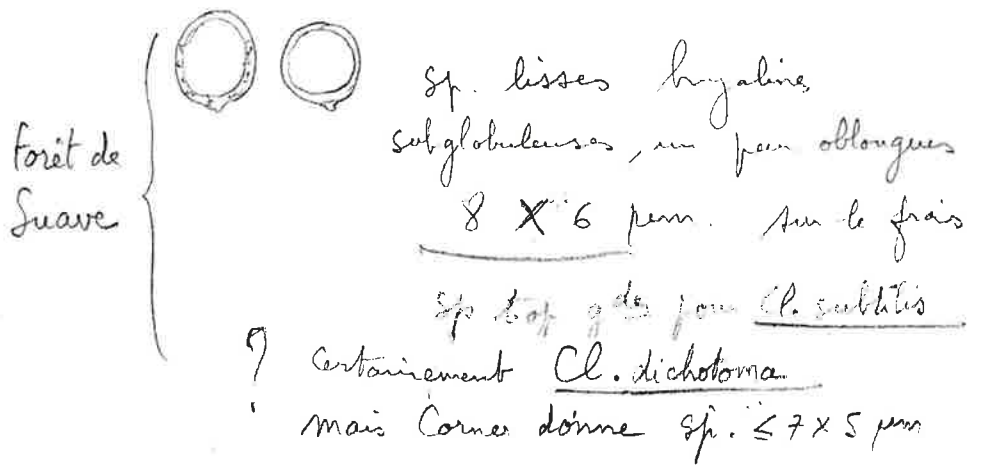 Forêt de
Suave
sp. lisses hyalines
subglobuleuses, un peu oblongues
8 X 6 µm. sur le frais
sp trop gdes pour Cl. subtilis
? certainement Cl. dichotoma
mais Corner donne sp. ≤ 7 x 5 µm